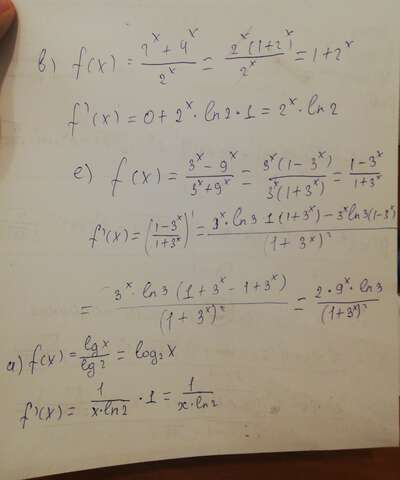 в) f(x) = (2^x + 4^x)/2^x = 2^x(1+2^x)/2^x = 1+2^x
f'(x) = 0 + 2^x · ln2 · 1 = 2^x · ln2
е) f(x) = (3^x - 9^x)/(3^x + 9^x) = 3^x(1 - 3^x)/3^x(1 + 3^x) = (1-3^x)/(1+3^x)
f'(x) = ((1-3^x)/(1+3^x))' = (3^x · ln3 · 1(1+3^x) - 3^x ln3(1-3^x))/(1+3^x)^2
= 3^x · ln3 (1+3^x - 1+3^x)/(1+3^x)^2 = 2 · 9^x · ln3/(1+3^x)^2
а) f(x) = lg x/lg 2 = log₂x
f'(x) = 1/(x·ln2) · 1 = 1/(x·ln2)